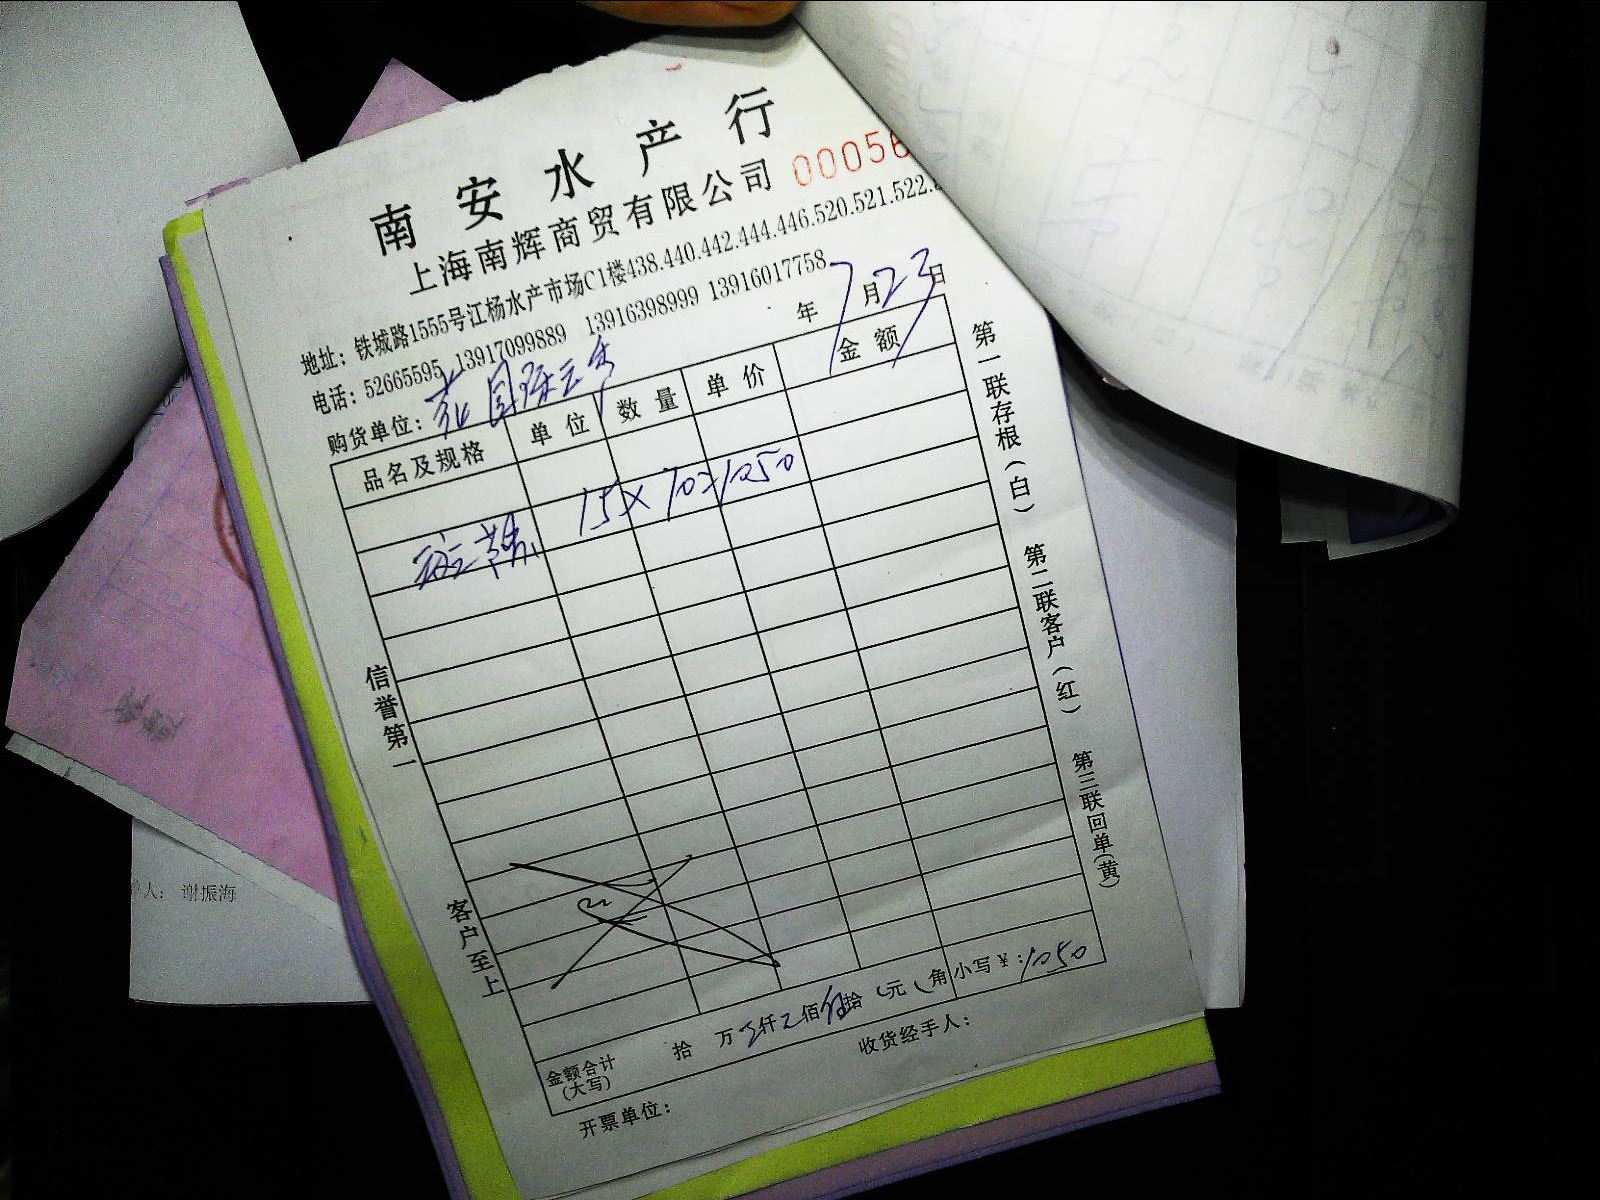 南安水产行
上海南辉商贸有限公司 00056
地址：铁城路1555号江杨水产市场C1楼438.440.442.444.446.520.521.522.
电话：52665595 13917099889 13916398999 13916017758
年 7月23日
购货单位：
品名及规格 单位 数量 单价 金额
15×70=1050
金额合计(大写) 拾 万 仟 佰 伍拾 元 角 小写￥：1050
开票单位： 收货经手人：
信誉第一
客户至上
第一联存根(白)
第二联客户(红)
第三联回单(黄)
人： 谢振海